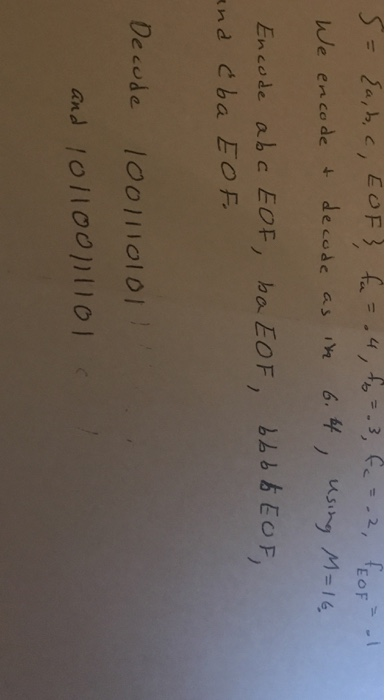 S = {a, b, c, EOF}, fa = .4, fb = .3, fc = .2, fEOF = .1
We encode + decode as in 6.4, using M=16.
Encode abc EOF, ba EOF, bbbb EOF,
and cba EOF.
Decode 1001110101
and 101100111101